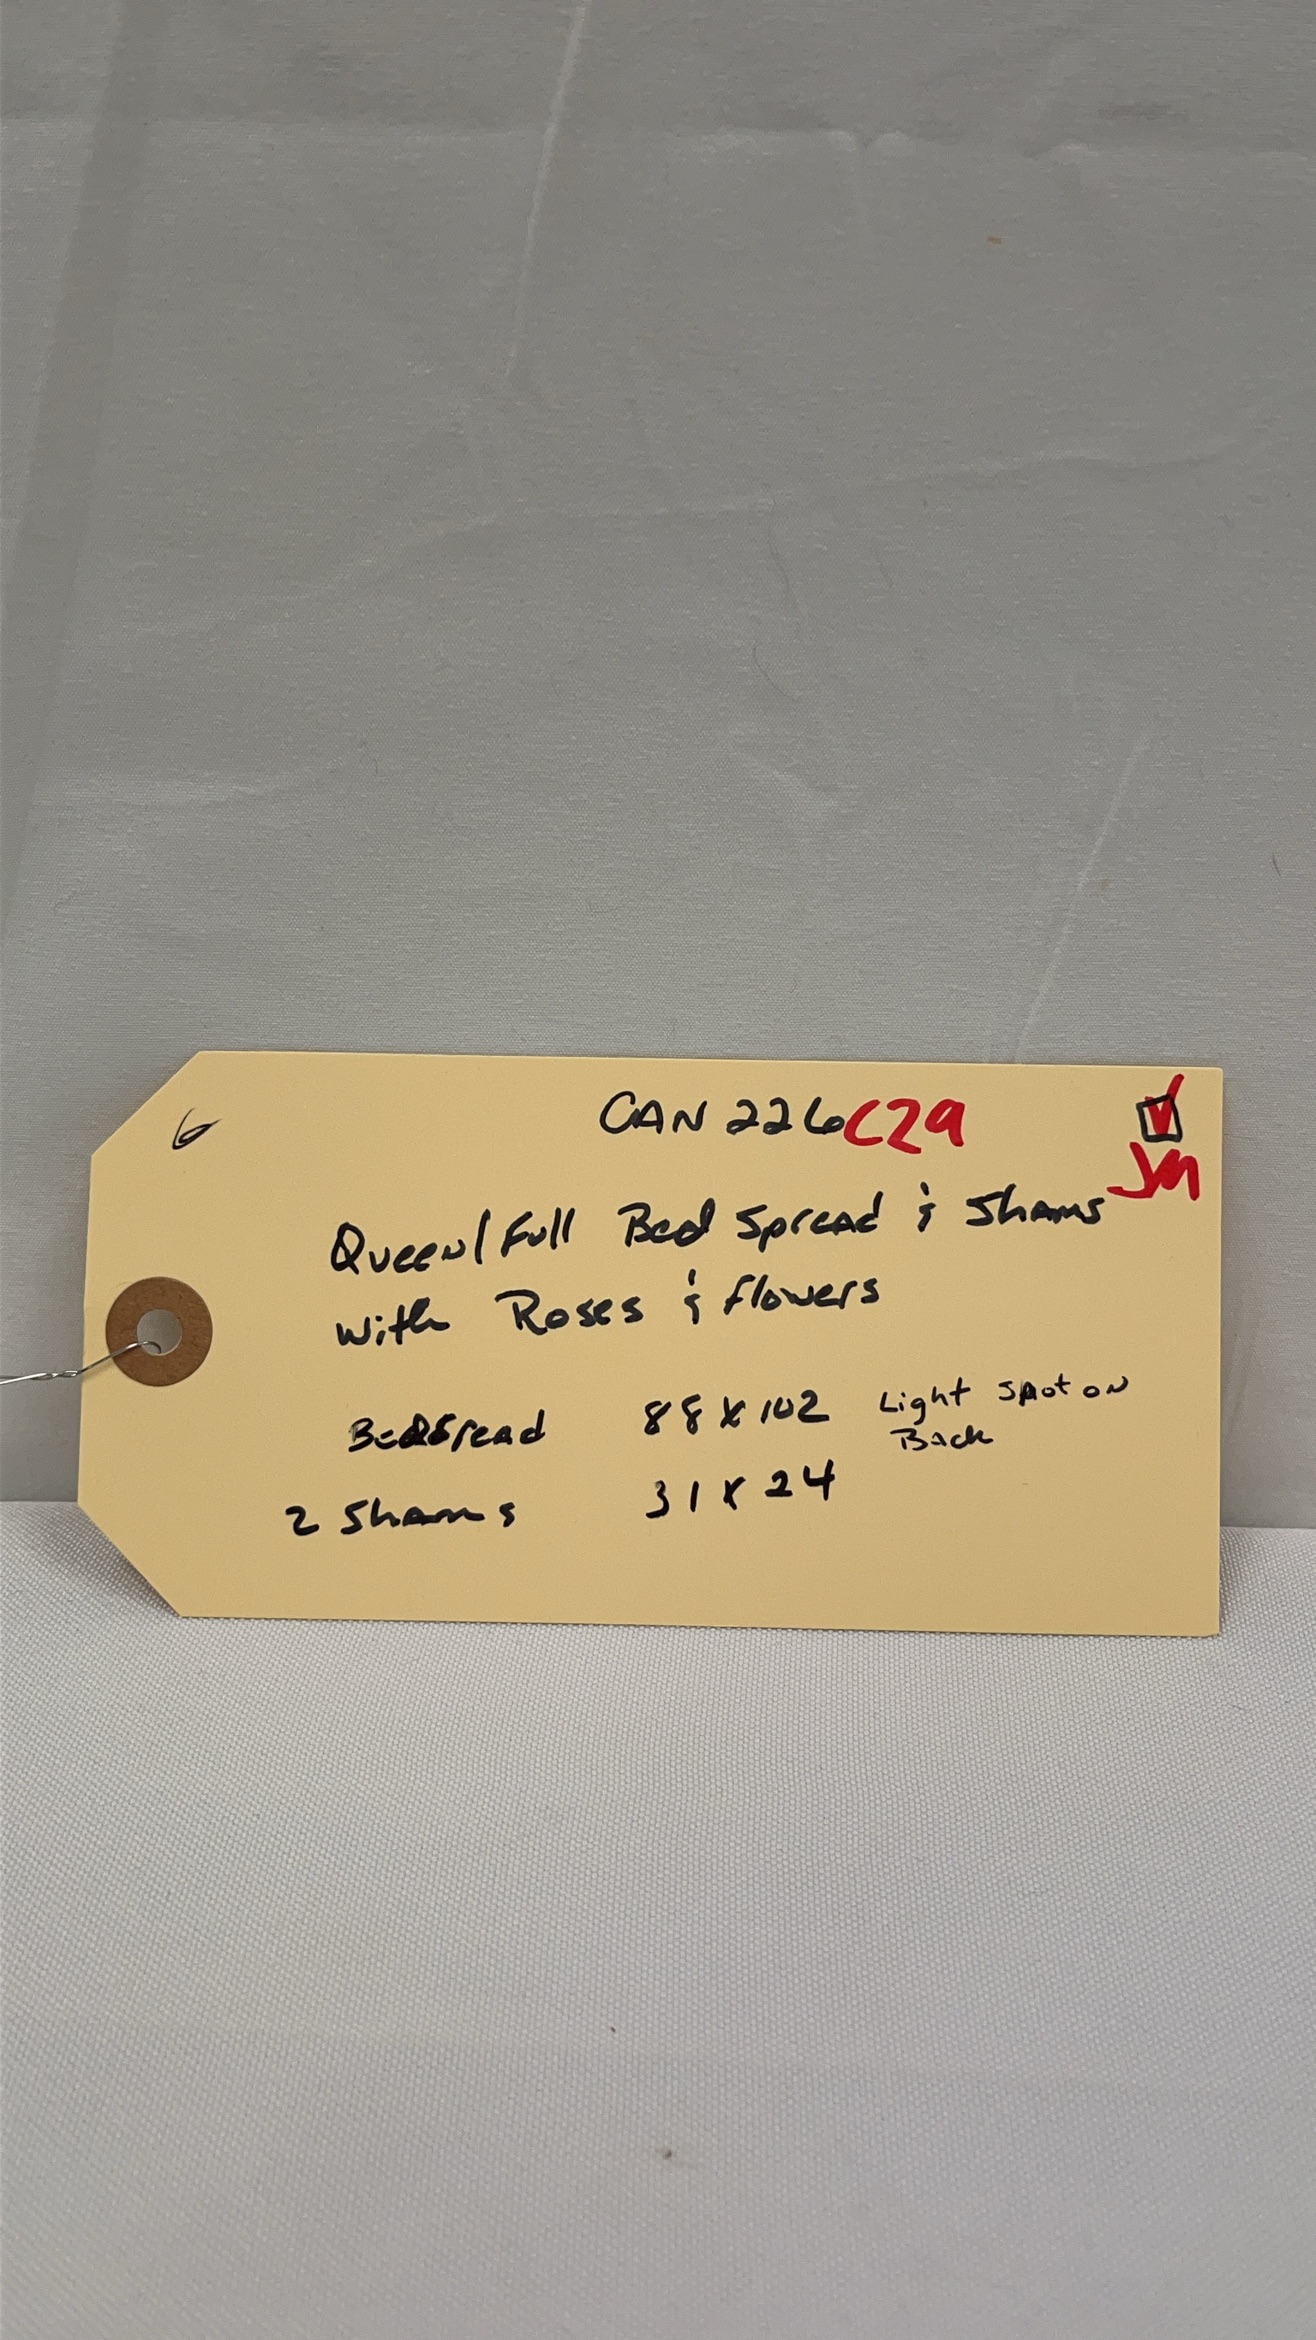 6
CAN 226 C29
JM
Queen/Full Bed Spread & Shams
with Roses & flowers
BedSpread 88 x 102 Light Spot on
Back
2 Shams 31 x 24